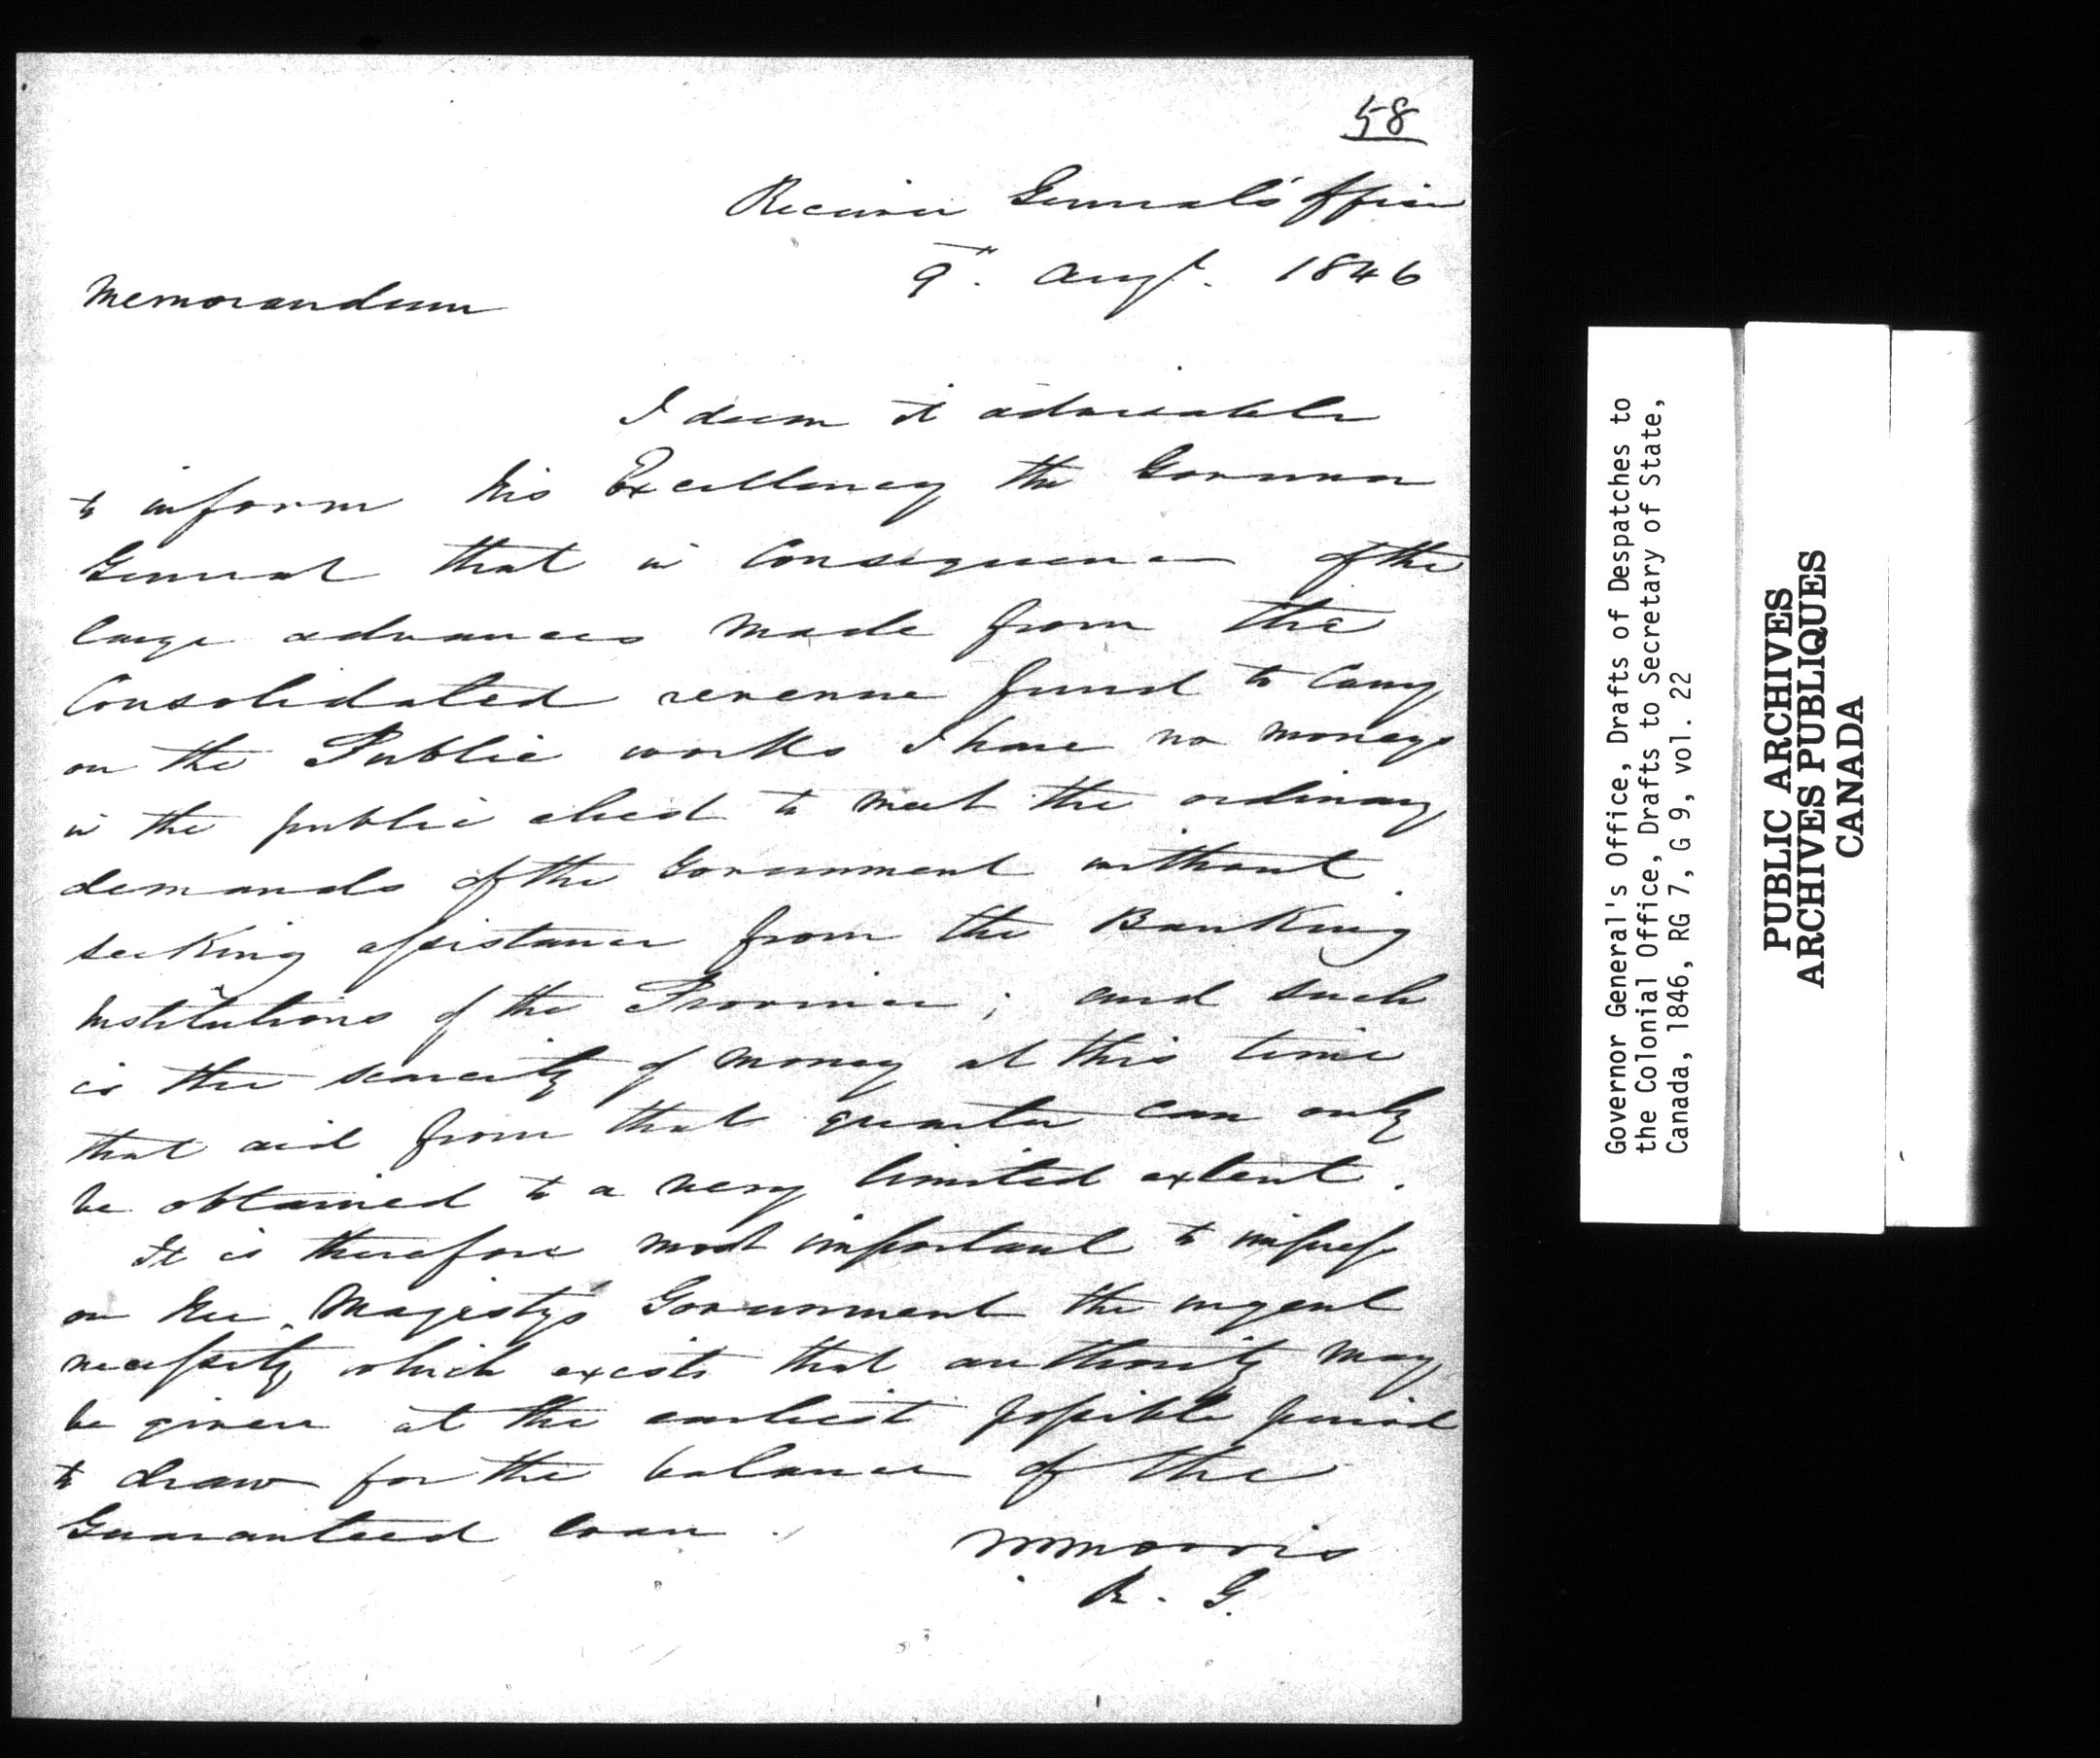 58
Receiver General's Office
9th. Augt. 1846
Memorandum
I deem it adviseable
to inform His Excellency the Governor
General that in Consequence of the
large advances made from the
Consolidated revenue fund to Carry
on the Public works I have no moneys
in the public chest to meet the ordinary
demands of the Government without
seeking assistance from the Banking
Institutions of the Province; and such
is the scarcity of money at this time
that aid from that quarter can only
be obtained to a very limited extent.
It is therefore most important to impress
on Her Majestys Government the urgent
necessity which exists that authority may
be given at the earliest possible period
to draw for the balance of the
Guaranteed loan.
W Morris
R. G.
Governor General's Office, Drafts of Despatches to
the Colonial Office, Drafts to Secretary of State,
Canada, 1846, RG 7, G 9, vol. 22
PUBLIC ARCHIVES
ARCHIVES PUBLIQUES
CANADA